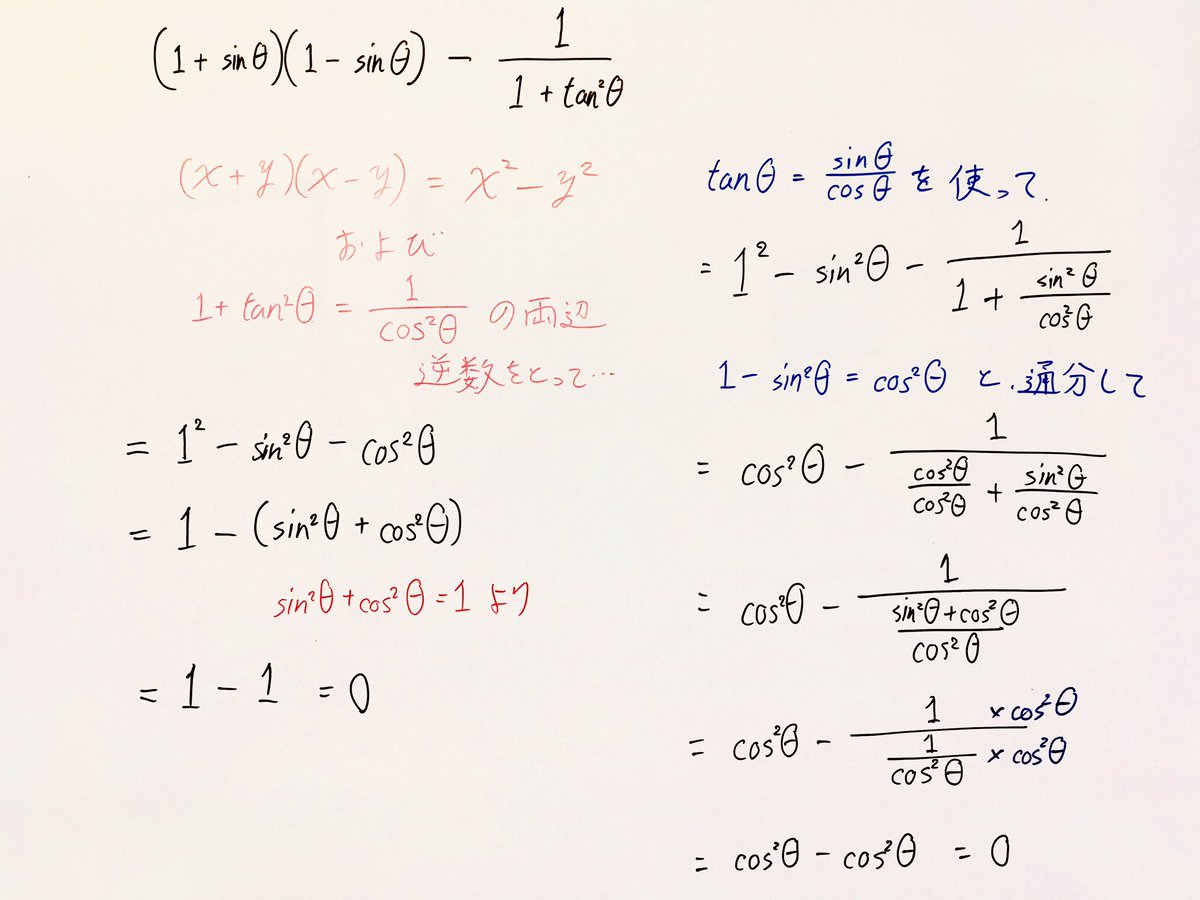 (1 + sinθ)(1 - sinθ) - 1/(1 + tan²θ)
(x + y)(x - y) = x² - y²
および
1 + tan²θ = 1/cos²θ の両辺
逆数をとって…
= 1² - sin²θ - cos²θ
= 1 - (sin²θ + cos²θ)
sin²θ + cos²θ = 1 より
= 1 - 1 = 0
tanθ = sinθ/cosθ を使って.
= 1² - sin²θ - 1/(1 + sin²θ/cos²θ)
1 - sin²θ = cos²θ と.通分して
= cos²θ - 1/(cos²θ/cos²θ + sin²θ/cos²θ)
= cos²θ - 1/((sin²θ + cos²θ)/cos²θ)
= cos²θ - (1 × cos²θ)/(1/cos²θ × cos²θ)
= cos²θ - cos²θ = 0